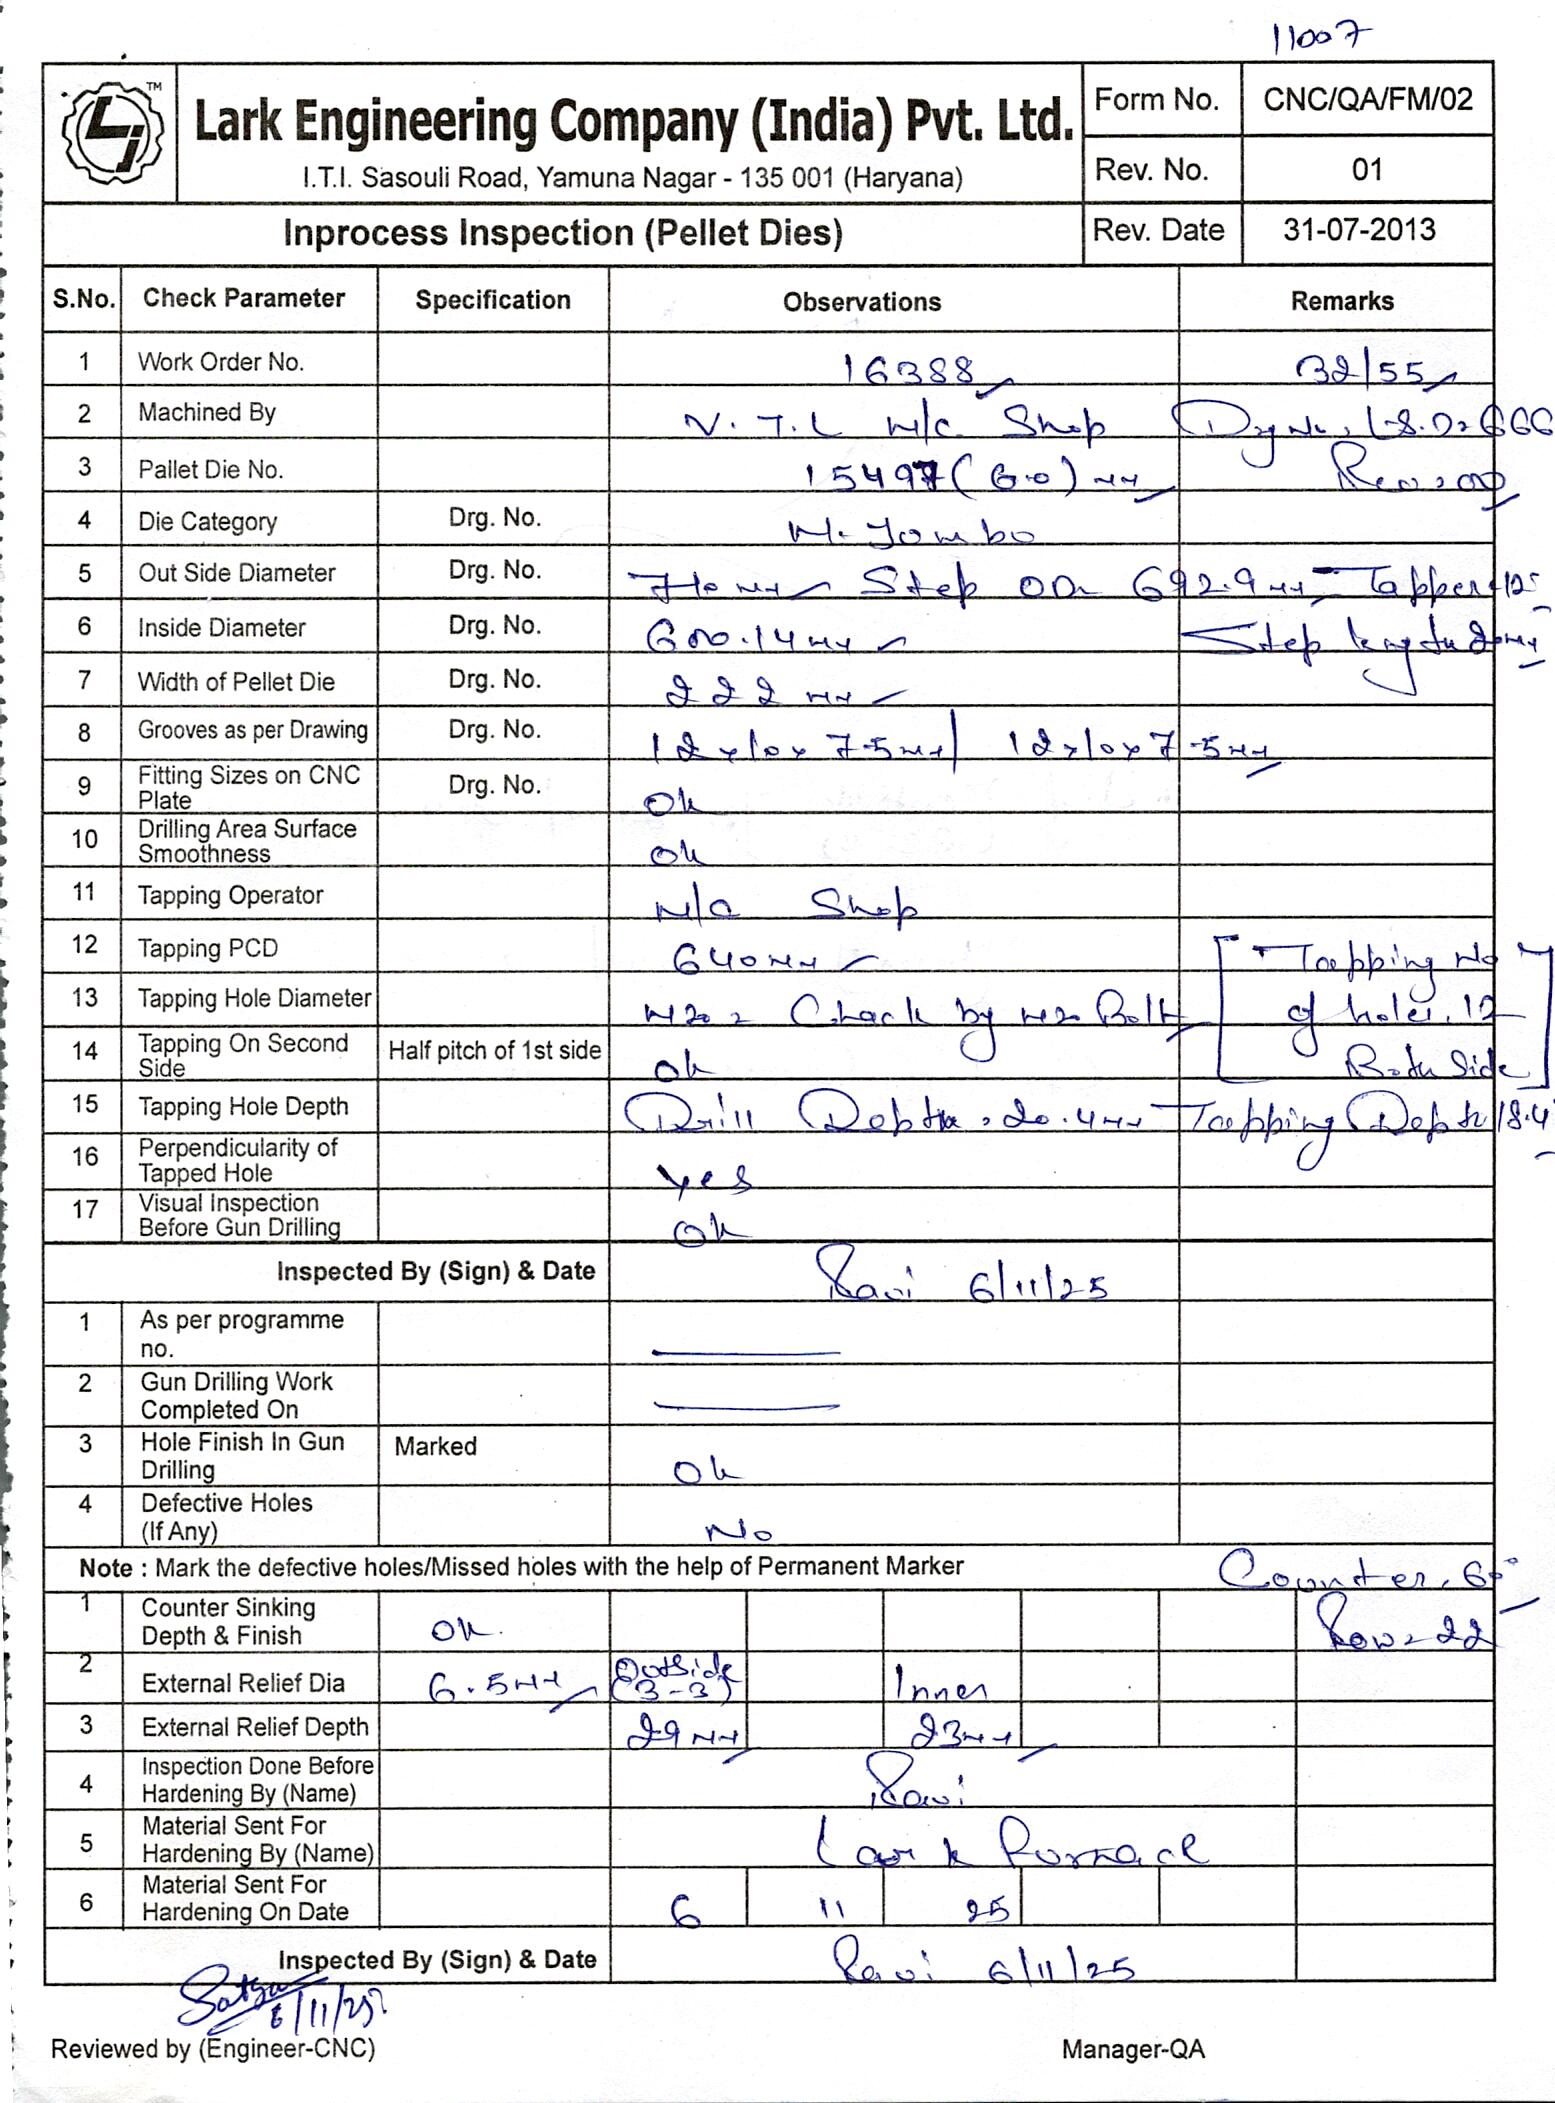 11007
TM
Lark Engineering Company (India) Pvt. Ltd.
I.T.I. Sasouli Road, Yamuna Nagar - 135 001 (Haryana)
Form No. CNC/QA/FM/02
Rev. No. 01
Inprocess Inspection (Pellet Dies) Rev. Date 31-07-2013
S.No. Check Parameter Specification Observations Remarks
1 Work Order No. 16388 32/55
2 Machined By V.T.L M/C Shop
3 Pallet Die No. 15497 (6.0) MM
4 Die Category Drg. No. M. Jombo
5 Out Side Diameter Drg. No. Step OD 692.9 MM Tapper 12°
6 Inside Diameter Drg. No. 600.14 MM Step length 20MM
7 Width of Pellet Die Drg. No. 222 MM
8 Grooves as per Drawing Drg. No. 12x10x7.5MM | 12x10x7.5MM
9 Fitting Sizes on CNC Plate Drg. No. Ok
10 Drilling Area Surface Smoothness Ok
11 Tapping Operator M/C Shop
12 Tapping PCD 640MM [Tapping No
13 Tapping Hole Diameter M20 = Chack by M20 Bolt of holes. 12
14 Tapping On Second Side Half pitch of 1st side Ok Both Side]
15 Tapping Hole Depth Drill Depth = 20.4MM Tapping Depth 18.4
16 Perpendicularity of Tapped Hole Yes
17 Visual Inspection Before Gun Drilling Ok
Inspected By (Sign) & Date Ravi 6/11/25
1 As per programme no.
2 Gun Drilling Work Completed On
3 Hole Finish In Gun Drilling Marked Ok
4 Defective Holes (If Any) No
Note : Mark the defective holes/Missed holes with the help of Permanent Marker Counter. 60°
1 Counter Sinking Depth & Finish OK. Row = 22
2 External Relief Dia 6.5MM Outside (3-3) Inner
3 External Relief Depth 29MM 23MM
4 Inspection Done Before Hardening By (Name) Ravi
5 Material Sent For Hardening By (Name) Lark Furnace
6 Material Sent For Hardening On Date 6 11 25
Inspected By (Sign) & Date Ravi 6/11/25
6/11/25
Reviewed by (Engineer-CNC) Manager-QA